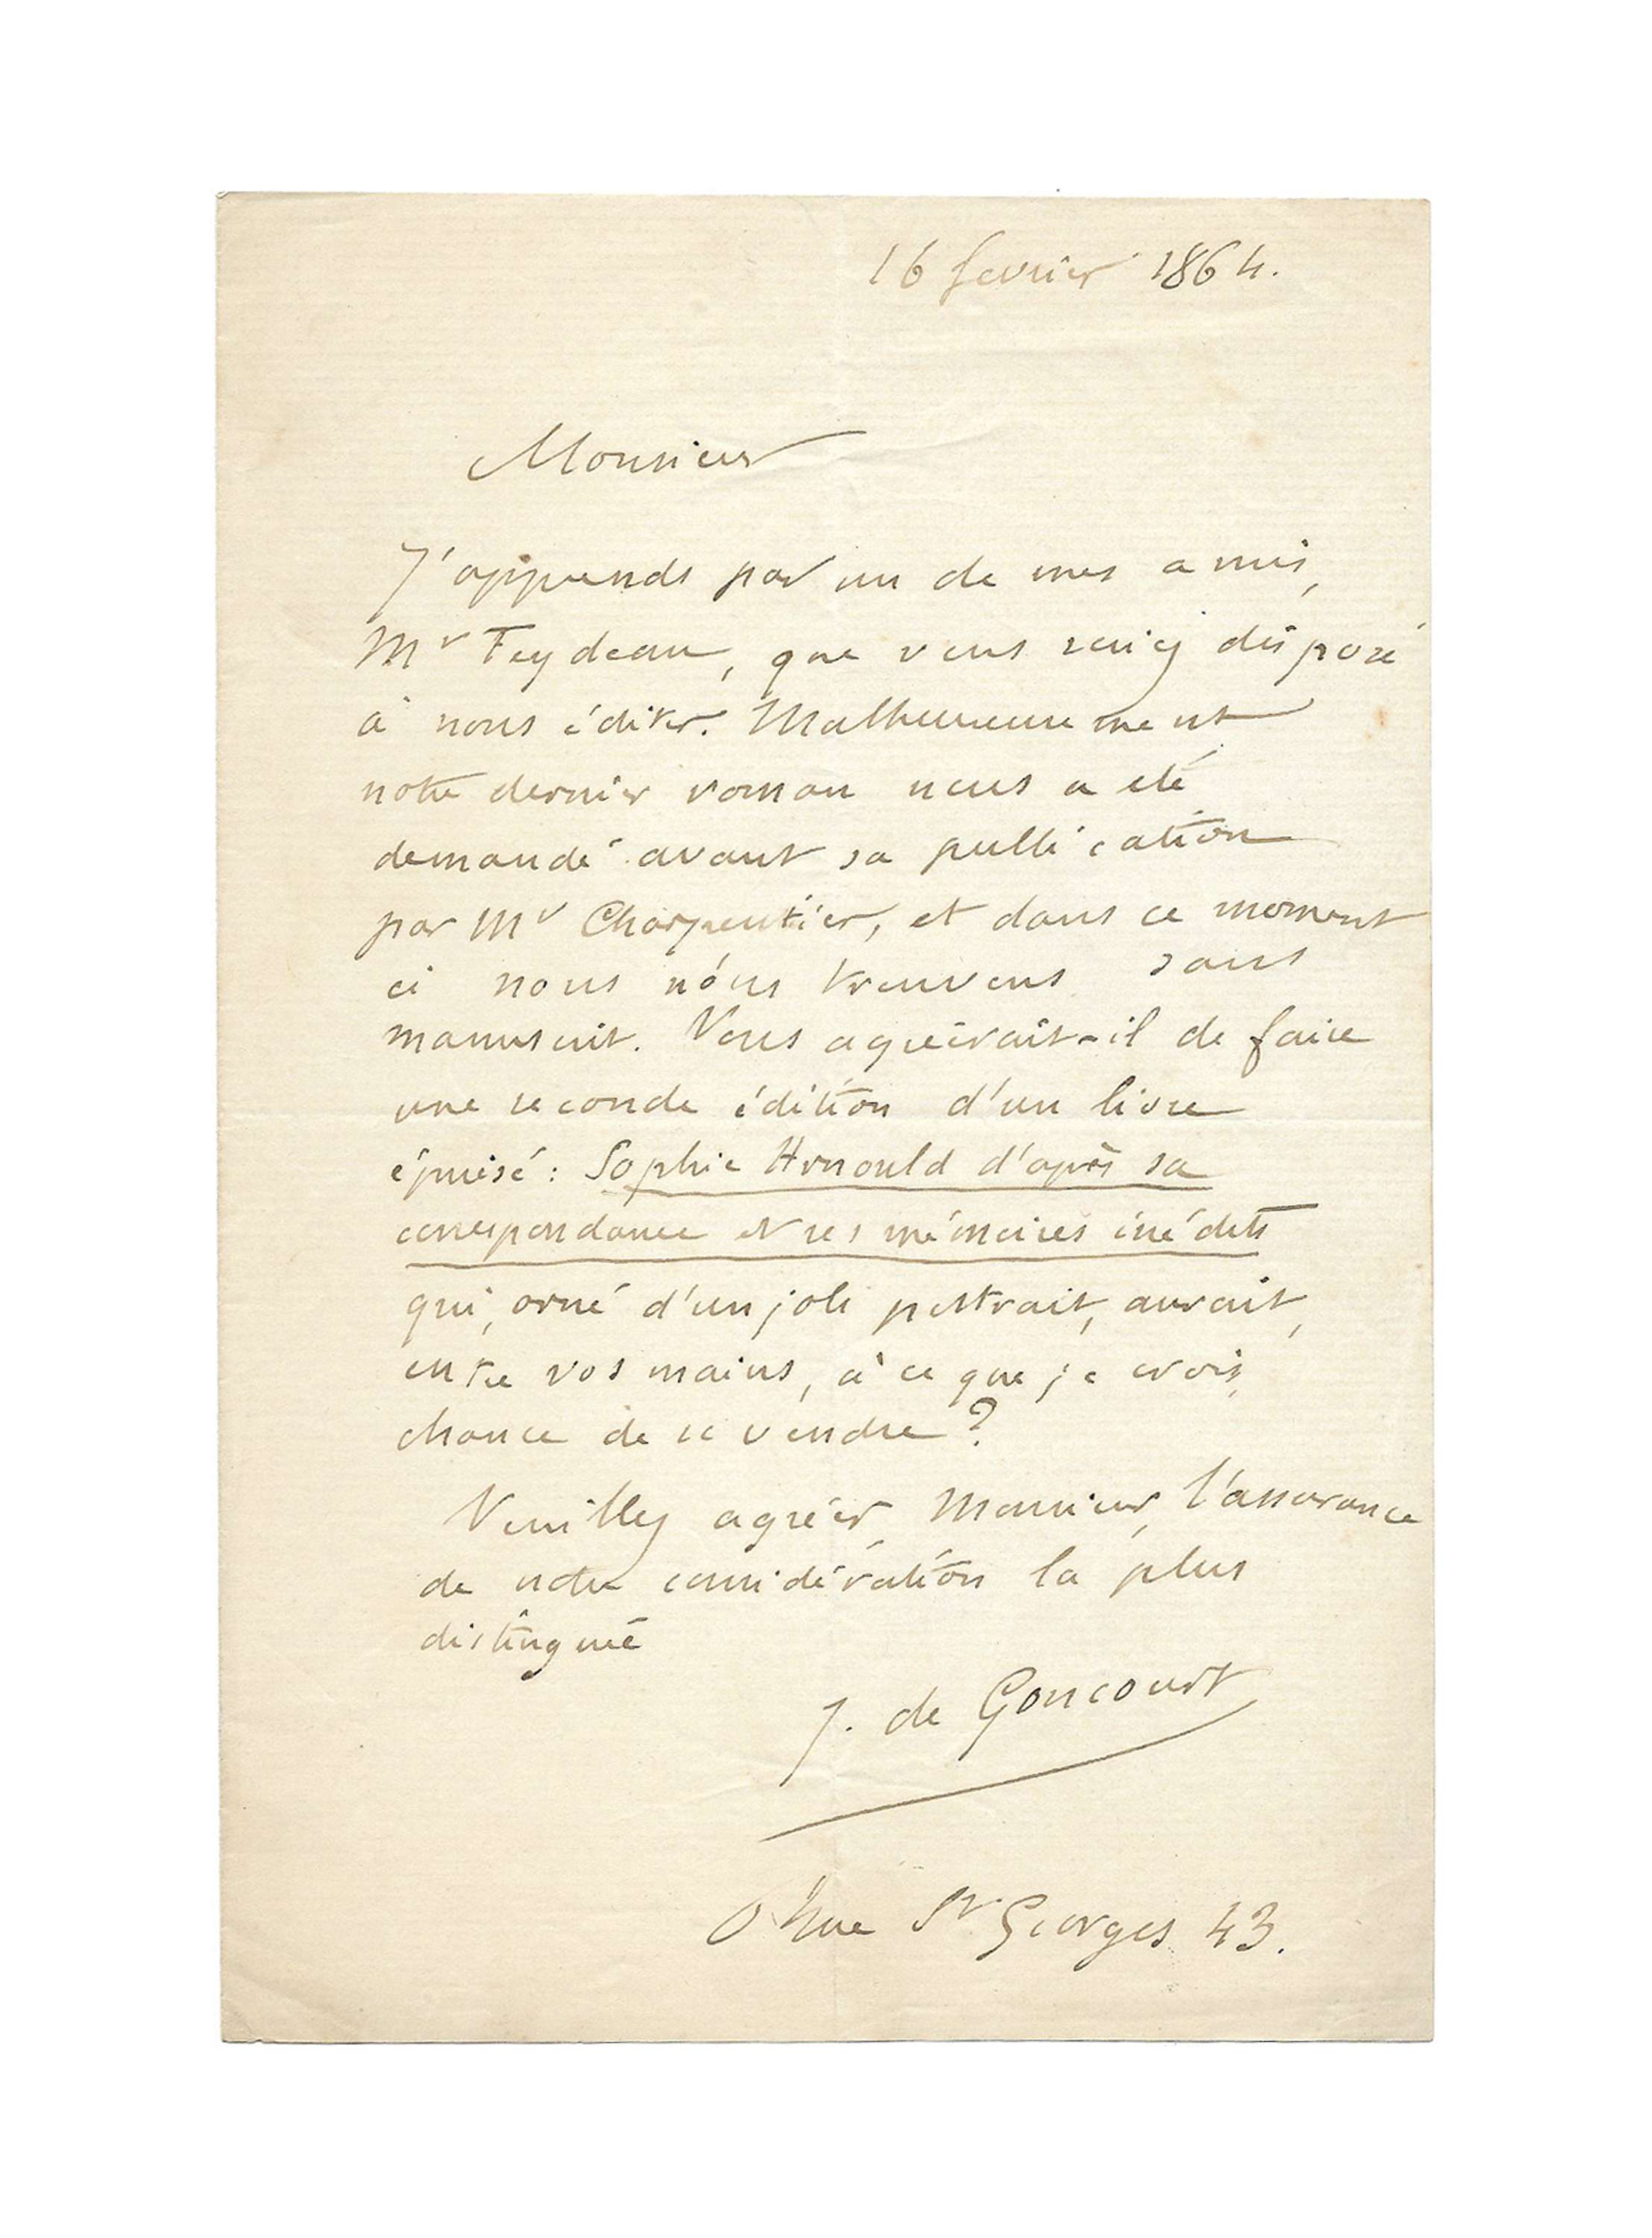 16 fevrier 1864.
Monsieur
J'apprends par un de mes amis,
Mr Feydeau, que vous seriez disposé
à nous éditer. Malheureusement
notre dernier roman nous a été
demandé avant sa publication
par Mr Charpentier, et dans ce moment
ci nous nous trouvons sans
manuscrit. Vous agréerait-il de faire
une seconde édition d'un livre
épuisé : Sophie Arnould d'après sa
correspondance et ses mémoires inédits
qui, orné d'un joli portrait, aurait,
entre vos mains, à ce que je crois,
chance de se vendre ?
Veuillez agréer, Monsieur, l'assurance
de notre considération la plus
distingué
J. de Goncourt
Rue St Georges 43.